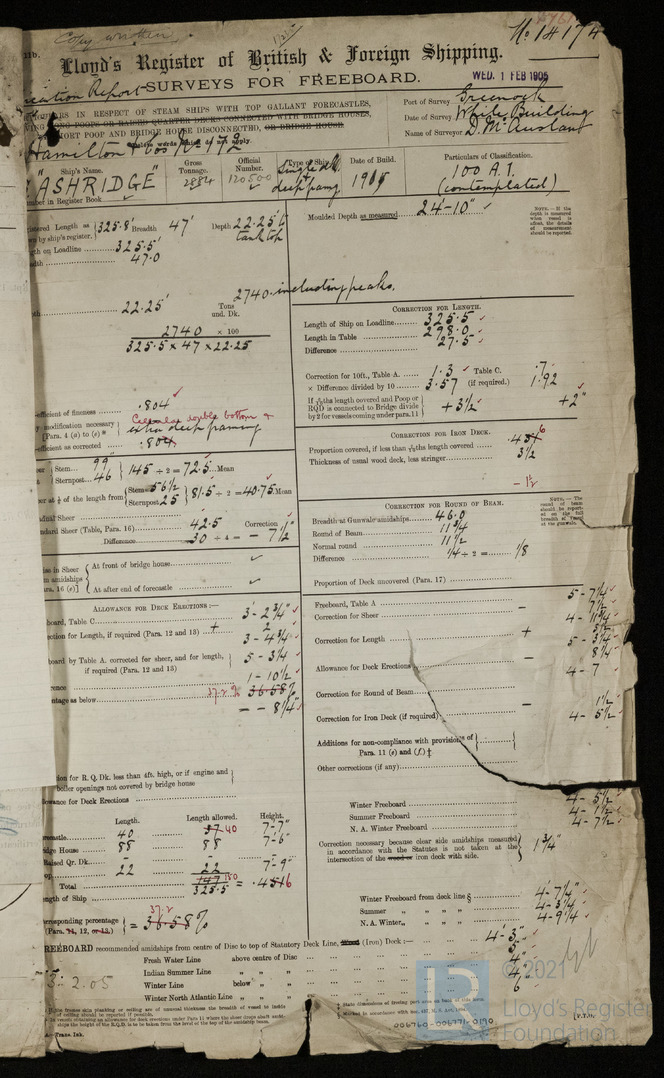 Copy written
No 14174
Lloyd's Register of British & Foreign Shipping.
WED. 1 FEB 1905
SURVEYS FOR FREEBOARD.
IN RESPECT OF STEAM SHIPS WITH TOP GALLANT FORECASTLES,
Port of Survey Greenock
Date of Survey While Building
SHORT POOP AND BRIDGE HOUSE DISCONNECTED, OR BRIDGE HOUSE
Name of Surveyor D. McAusland
Hamilton & Cos No 172
Ship's Name.
Gross Tonnage.
Official Number.
Type of Ship
Date of Build.
Particulars of Classification.
"ASHRIDGE"
2884
120500
Single dk
deep framg
1905
100 A.1.
(contemplated)
Number in Register Book
Registered Length as 325.8' Breadth 47' Depth 22.25 to
tank top
Moulded Depth as measured 24'-10"
NOTE.—If the depth is measured when vessel is afloat, the details of measurement should be reported.
Length on Loadline 325.5'
47.0
22.25'
Tons und. Dk. 2740 including peaks.
2740 × 100
325.5 × 47 × 22.25
CORRECTION FOR LENGTH.
Length of Ship on Loadline 325.5
Length in Table 298.0
Difference 27.5
Correction for 10ft., Table A. 1.3 Table C. .7
× Difference divided by 10 3.57 (if required.) 1.92
If 6/10ths length covered and Poop or
RQD is connected to Bridge divide
by 2 for vessels coming under para. 11
+3½
+2"
Coefficient of fineness .804
Cellular double bottom &
modification necessary extra deep framing
[Para. 4 (a) to (e)]*
Coefficient as corrected .804
CORRECTION FOR IRON DECK.
Proportion covered, if less than 7/10ths length covered .456
Thickness of usual wood deck, less stringer 3½
- 1½
Stem 99
Sternpost 46
145 ÷ 2 = 72.5 Mean
at ¼ of the length from Stem 56½
Sternpost 25
81.5 ÷ 2 = 40.75 Mean
Standard Sheer (Table, Para. 16) 42.5 Correction
Difference 30 ÷ 4 = - 7½"
CORRECTION FOR ROUND OF BEAM.
Breadth at Gunwale amidships 46.0
Round of Beam 11¾
Normal round 11½
Difference ¼ ÷ 2 = 1/8
Proportion of Deck uncovered (Para. 17)
At front of bridge house
At after end of forecastle
ALLOWANCE FOR DECK ERECTIONS:—
Freeboard, Table C. 3-2¾"
Correction for Length, if required (Para. 12 and 13) + 2
3-4¾"
Freeboard by Table A. corrected for sheer, and for length,
if required (Para. 12 and 13)
5-3¼"
1-10½
37.2% 36.58%
- - 8¼"
Freeboard, Table A 5-7¼
Correction for Sheer — 7½
4-11¾
Correction for Length + 3½
5-3¼
Allowance for Deck Erections — 8¼
4-7
Correction for Round of Beam
Correction for Iron Deck (if required) — 1½
4-5½
Additions for non-compliance with provisions of
Para. 11 (e) and (f) ‡
Other corrections (if any)
for R. Q. Dk. less than 4ft. high, or if engine and
boiler openings not covered by bridge house
Allowance for Deck Erections
Length. Length allowed. Height.
Forecastle 40 37 40 7-7"
Bridge House 88 88 7-6"
Raised Qr. Dk. –
22 22 7-9"
Total 147 150
Length of Ship 325.5 = .4516
Corresponding percentage
(Para. 11, 12, or 13) = 37.2 36.58%
Winter Freeboard 4-5½
Summer Freeboard 4-1½
N. A. Winter Freeboard 4-7½
Correction necessary because clear side amidships measured
in accordance with the Statutes is not taken at the
intersection of the wood or iron deck with side.
1¾"
Winter Freeboard from deck line § 4-7¼"
Summer 4-3¼
N. A. Winter 4-9¼
FREEBOARD recommended amidships from centre of Disc to top of Statutory Deck Line, Wood (Iron) Deck :— 4-3
Fresh Water Line above centre of Disc
Indian Summer Line
Winter Line below
Winter North Atlantic Line
3.2.05
[P.T.O.
006760-006771-0170
© 2021
Lloyd's Register
Foundation